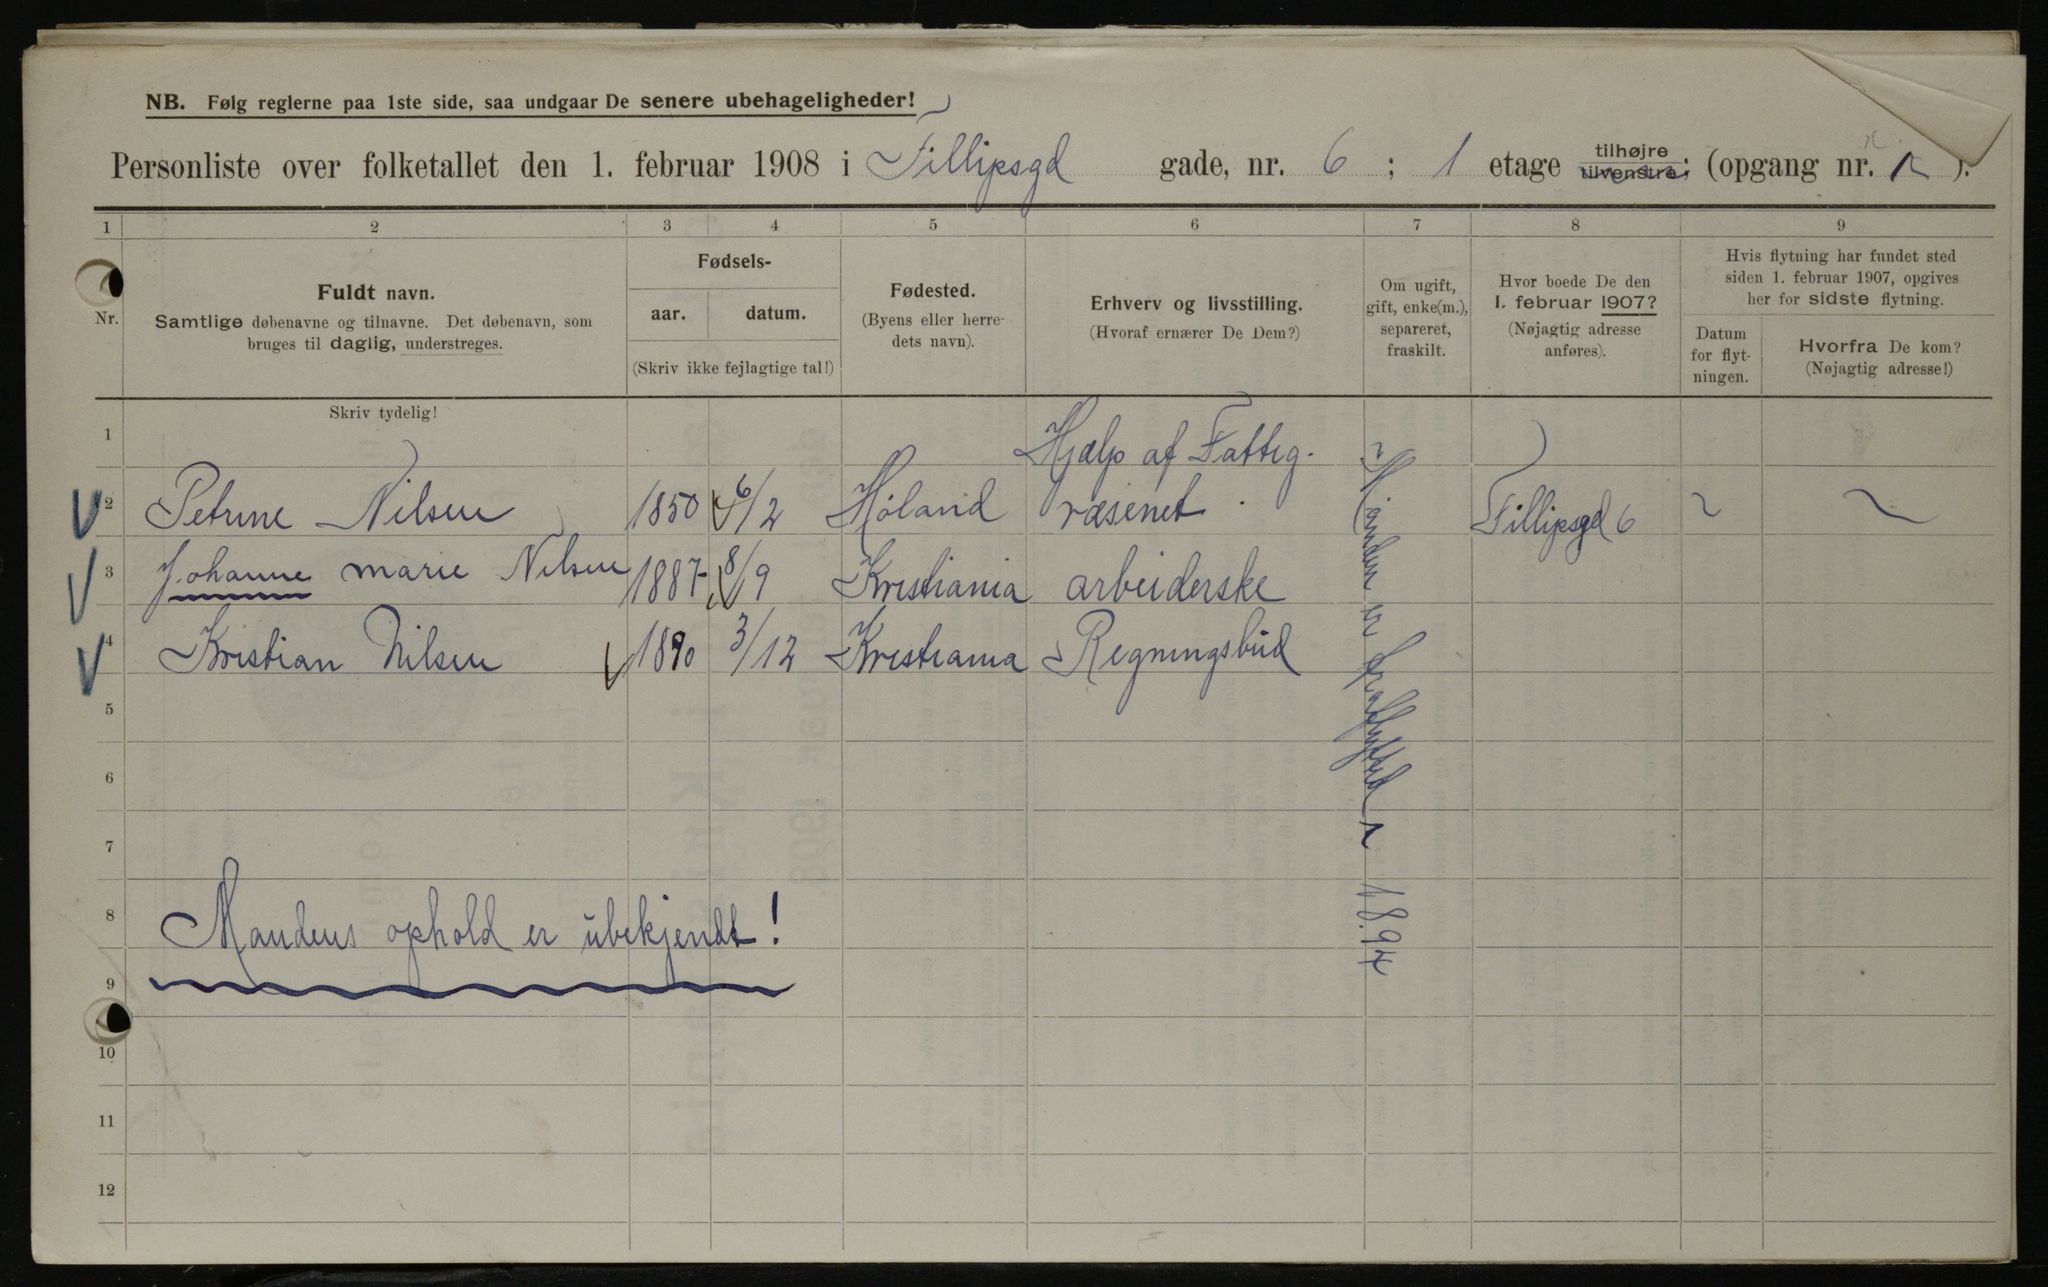 NB. Følg reglerne paa 1ste side, saa undgaar De senere ubehageligheder!
Personliste over folketallet den 1. februar 1908 i Fillipsgd gade, nr. 6 ; 1 etage tilhøjre tilvenstre; (opgang nr. ).
1 2 3 4 5 6 7 8 9
Nr.
Fuldt navn.
Samtlige døbenavne og tilnavne. Det døbenavn, som
bruges til daglig, understreges.
Fødsels-
aar. datum.
(Skriv ikke fejlagtige tal!)
Fødested.
(Byens eller herre-
dets navn).
Erhverv og livsstilling.
(Hvoraf ernærer De Dem?)
Om ugift,
gift, enke(m.),
separeret,
fraskilt.
Hvor boede De den
1. februar 1907?
(Nøjagtig adresse
anføres).
Hvis flytning har fundet sted
siden 1. februar 1907, opgives
her for sidste flytning.
Datum
for flyt-
ningen.
Hvorfra De kom?
(Nøjagtig adresse!)
Skriv tydelig!
1 Hjælp af Fattig-
2 Petrine Nilsen 1850 6/2 Høland væsenet Fillipsgd 6
3 Johanne marie Nilsen 1887 8/9 Kristiania arbeiderske
4 Kristian Nilsen 1890 3/12 Kristiania Regningsbud
Manden er fraflyttet 1894
5
6
7
8 Mandens ophold er ubekjendt!
9
10
11
12